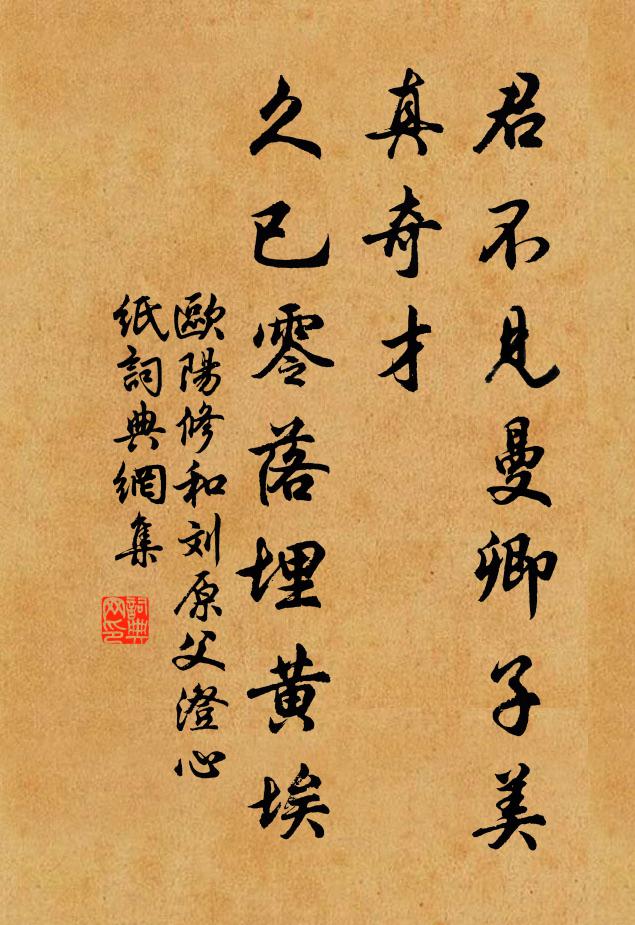 君不見曼卿子美
真奇才
久已零落埋黄埃
歐陽修和刘原父澄心
紙詞典網集
詞典
网印